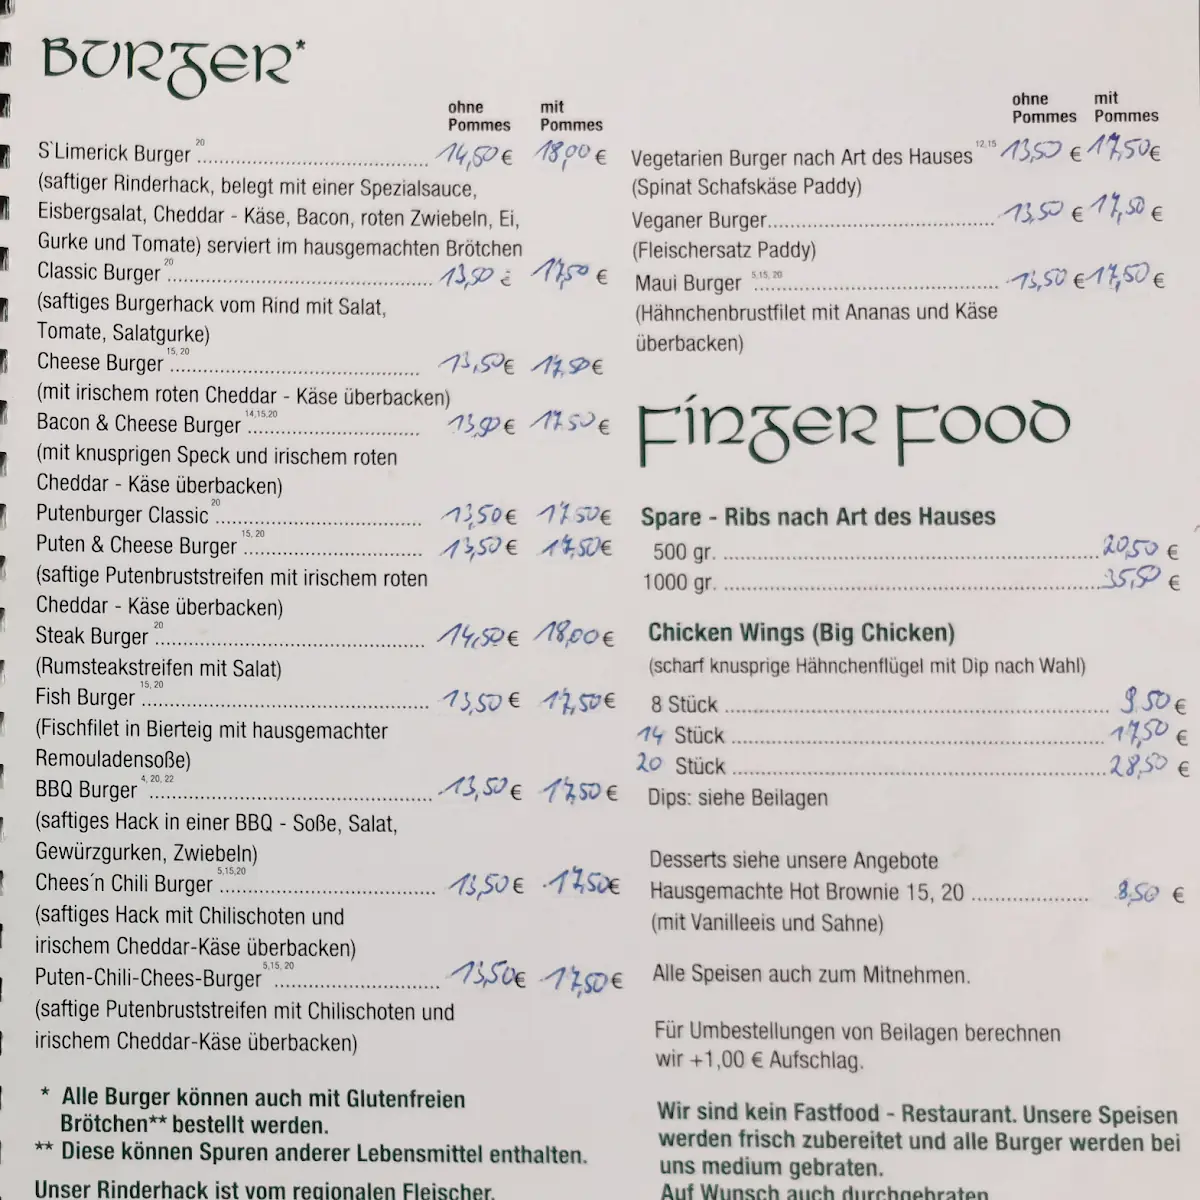 BURGER*
ohne mit
Pommes Pommes
S`Limerick Burger 20 14,50 € 18,00 €
(saftiger Rinderhack, belegt mit einer Spezialsauce,
Eisbergsalat, Cheddar - Käse, Bacon, roten Zwiebeln, Ei,
Gurke und Tomate) serviert im hausgemachten Brötchen
Classic Burger 20 13,50 € 17,50 €
(saftiges Burgerhack vom Rind mit Salat,
Tomate, Salatgurke)
Cheese Burger 15, 20 13,50 € 17,50 €
(mit irischem roten Cheddar - Käse überbacken)
Bacon & Cheese Burger 14,15,20 13,50 € 17,50 €
(mit knusprigen Speck und irischem roten
Cheddar - Käse überbacken)
Putenburger Classic 20 13,50 € 17,50 €
Puten & Cheese Burger 15, 20 13,50 € 17,50 €
(saftige Putenbruststreifen mit irischem roten
Cheddar - Käse überbacken)
Steak Burger 20 14,50 € 18,00 €
(Rumsteakstreifen mit Salat)
Fish Burger 15, 20 13,50 € 17,50 €
(Fischfilet in Bierteig mit hausgemachter
Remouladensoße)
BBQ Burger 4, 20, 22 13,50 € 17,50 €
(saftiges Hack in einer BBQ - Soße, Salat,
Gewürzgurken, Zwiebeln)
Chees´n Chili Burger 5,15,20 13,50 € 17,50 €
(saftiges Hack mit Chilischoten und
irischem Cheddar-Käse überbacken)
Puten-Chili-Chees-Burger 5,15, 20 13,50 € 17,50 €
(saftige Putenbruststreifen mit Chilischoten und
irischem Cheddar-Käse überbacken)
* Alle Burger können auch mit Glutenfreien
Brötchen** bestellt werden.
** Diese können Spuren anderer Lebensmittel enthalten.
Unser Rinderhack ist vom regionalen Fleischer.
ohne mit
Pommes Pommes
Vegetarien Burger nach Art des Hauses 12,15 13,50 € 17,50 €
(Spinat Schafskäse Paddy)
Veganer Burger 13,50 € 17,50 €
(Fleischersatz Paddy)
Maui Burger 5,15, 20 13,50 € 17,50 €
(Hähnchenbrustfilet mit Ananas und Käse
überbacken)
FINGER FOOD
Spare - Ribs nach Art des Hauses
500 gr. 20,50 €
1000 gr. 35,50 €
Chicken Wings (Big Chicken)
(scharf knusprige Hähnchenflügel mit Dip nach Wahl)
8 Stück 9,50 €
14 Stück 17,50 €
20 Stück 28,50 €
Dips: siehe Beilagen
Desserts siehe unsere Angebote
Hausgemachte Hot Brownie 15, 20 8,50 €
(mit Vanilleeis und Sahne)
Alle Speisen auch zum Mitnehmen.
Für Umbestellungen von Beilagen berechnen
wir +1,00 € Aufschlag.
Wir sind kein Fastfood - Restaurant. Unsere Speisen
werden frisch zubereitet und alle Burger werden bei
uns medium gebraten.
Auf Wunsch auch durchgebraten